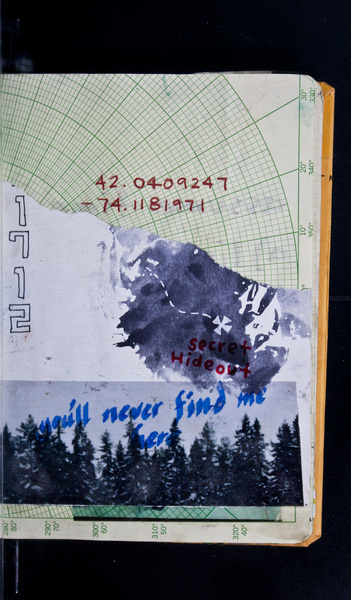 30°
330°
20°
340°
10°
350°
42.0409247
-74.1181971
1712
secret
Hideout
you'll never find me
here
280°
80°
290°
70°
300°
60°
310°
50°
320°
40°